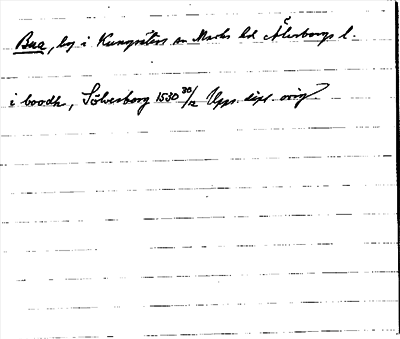 Baa, by i Kungsäters sn Marks hd Älvsborgs l.
i boodh, Sölvesborg 1530 30/12 Upps. dipl. orig